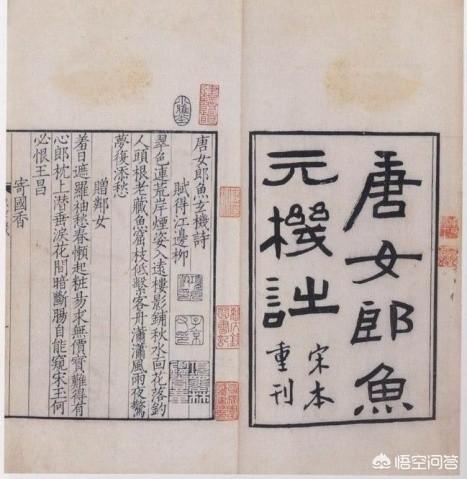 唐女郎魚
元機詩
宋本
重刊
唐女郎魚玄機詩
賦得江邊柳
翠色連荒岸煙姿入遠樓影鋪秋水面花落釣
人頭根老藏魚窟枝低繫客舟瀟瀟風雨夜驚
夢復添愁
贈鄰女
羞日遮羅袖愁春懶起粧易求無價寶難得有
心郎枕上潛垂淚花間暗斷腸自能窺宋玉何
必恨王昌
寄國香
悟空问答